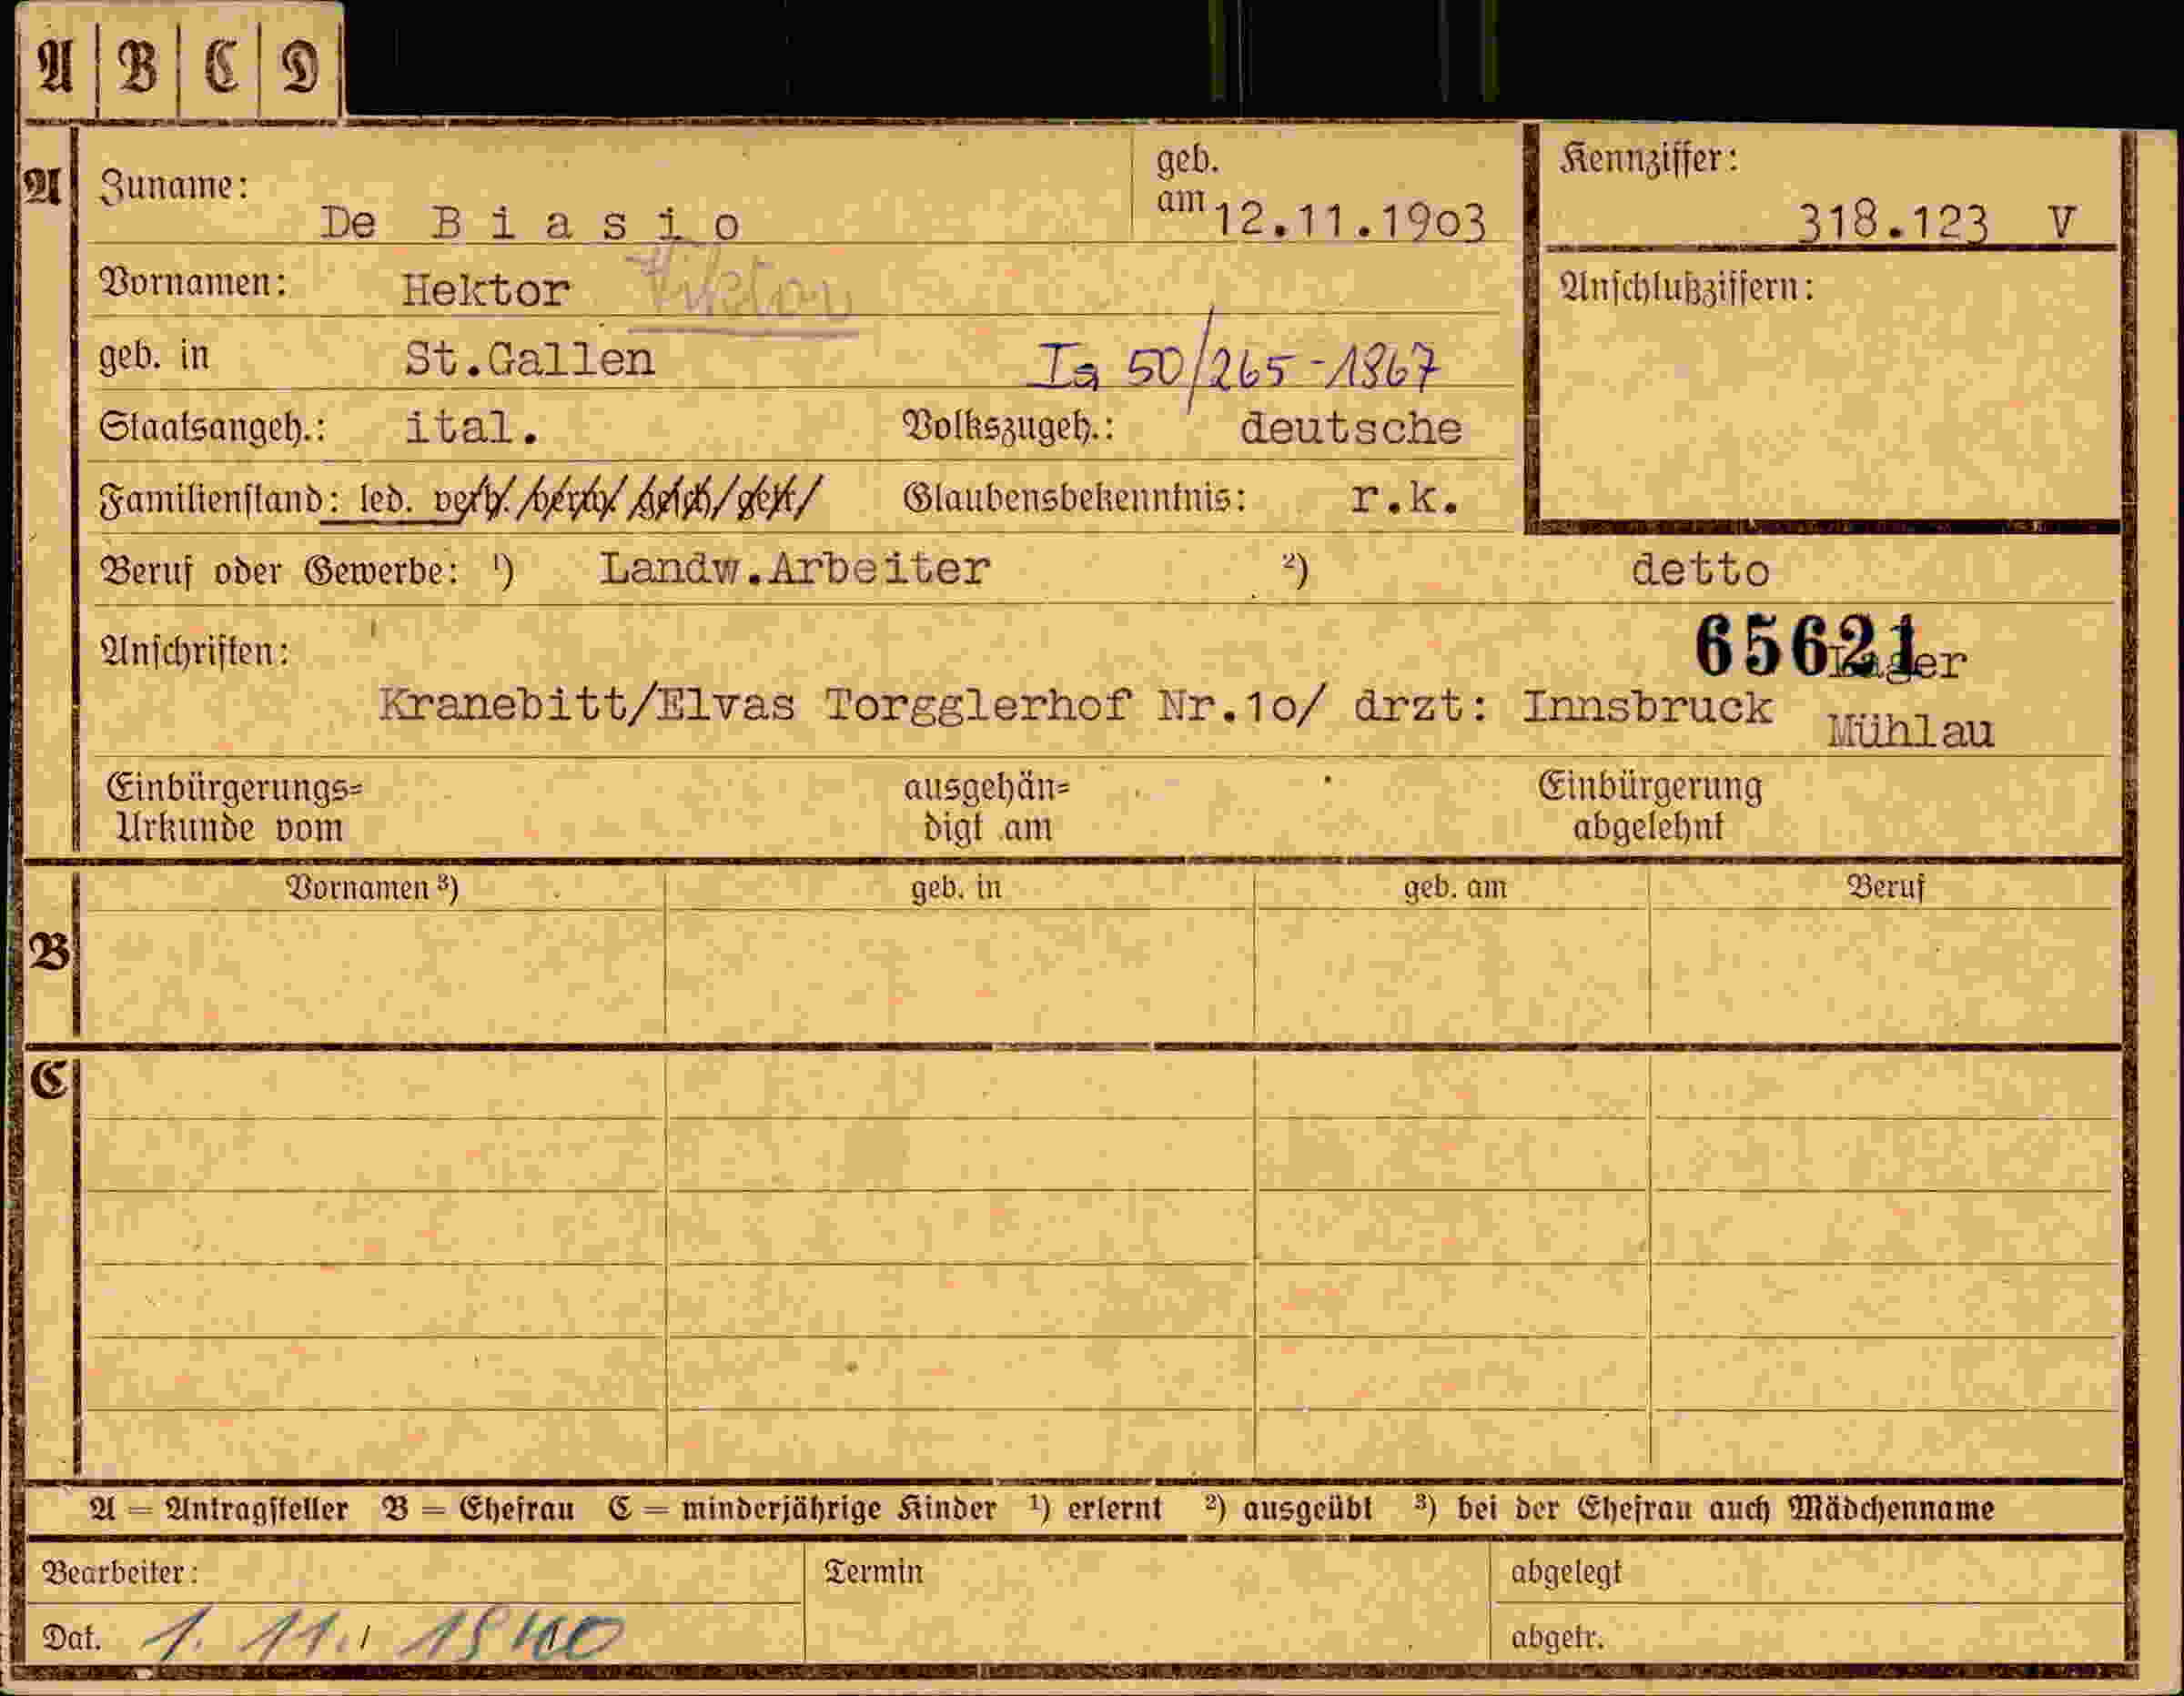 A B C D
A Zuname: De Biasio geb. am 12.11.1903 Kennziffer: 318.123 V
Vornamen: Hektor Viktor Anschlußziffern:
geb. in St.Gallen Ia 50/265-1867
Staatsangeh.: ital. Volkszugeh.: deutsche
Familienstand: led. verh. verw. gesch. getr. Glaubensbekenntnis: r.k.
Beruf oder Gewerbe: ¹) Landw.Arbeiter ²) detto
65621
Anschriften: Lager
Kranebitt/Elvas Torgglerhof Nr.1o/ drzt: Innsbruck Mühlau
Einbürgerungs= ausgehän= Einbürgerung
Urkunde vom digt am abgelehnt
Vornamen ³) geb. in geb. am Beruf
B
C
A = Antragsteller B = Ehefrau C = minderjährige Kinder ¹) erlernt ²) ausgeübt ³) bei der Ehefrau auch Mädchenname
Bearbeiter: Termin abgelegt
Dat. 1. 11. 1940 abgetr.